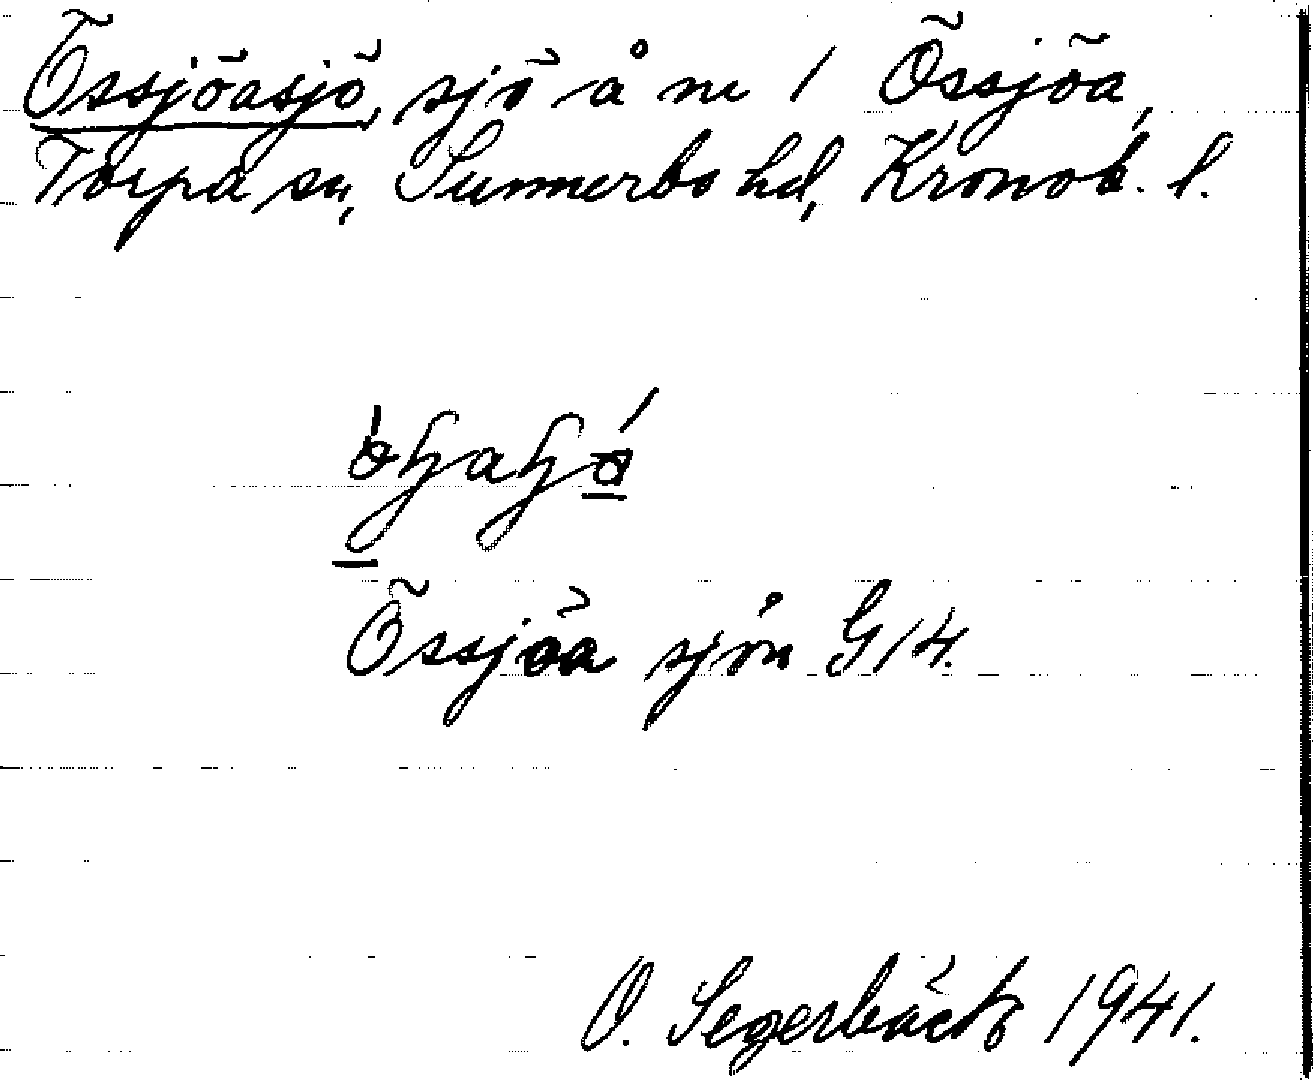 Össjöasjö, sjö å nr 1 Össjöa,
Torpa sn, Sunnerbo hd, Kronob. l.
Össjöa sjön G14.
O. Segerbäck 1941.